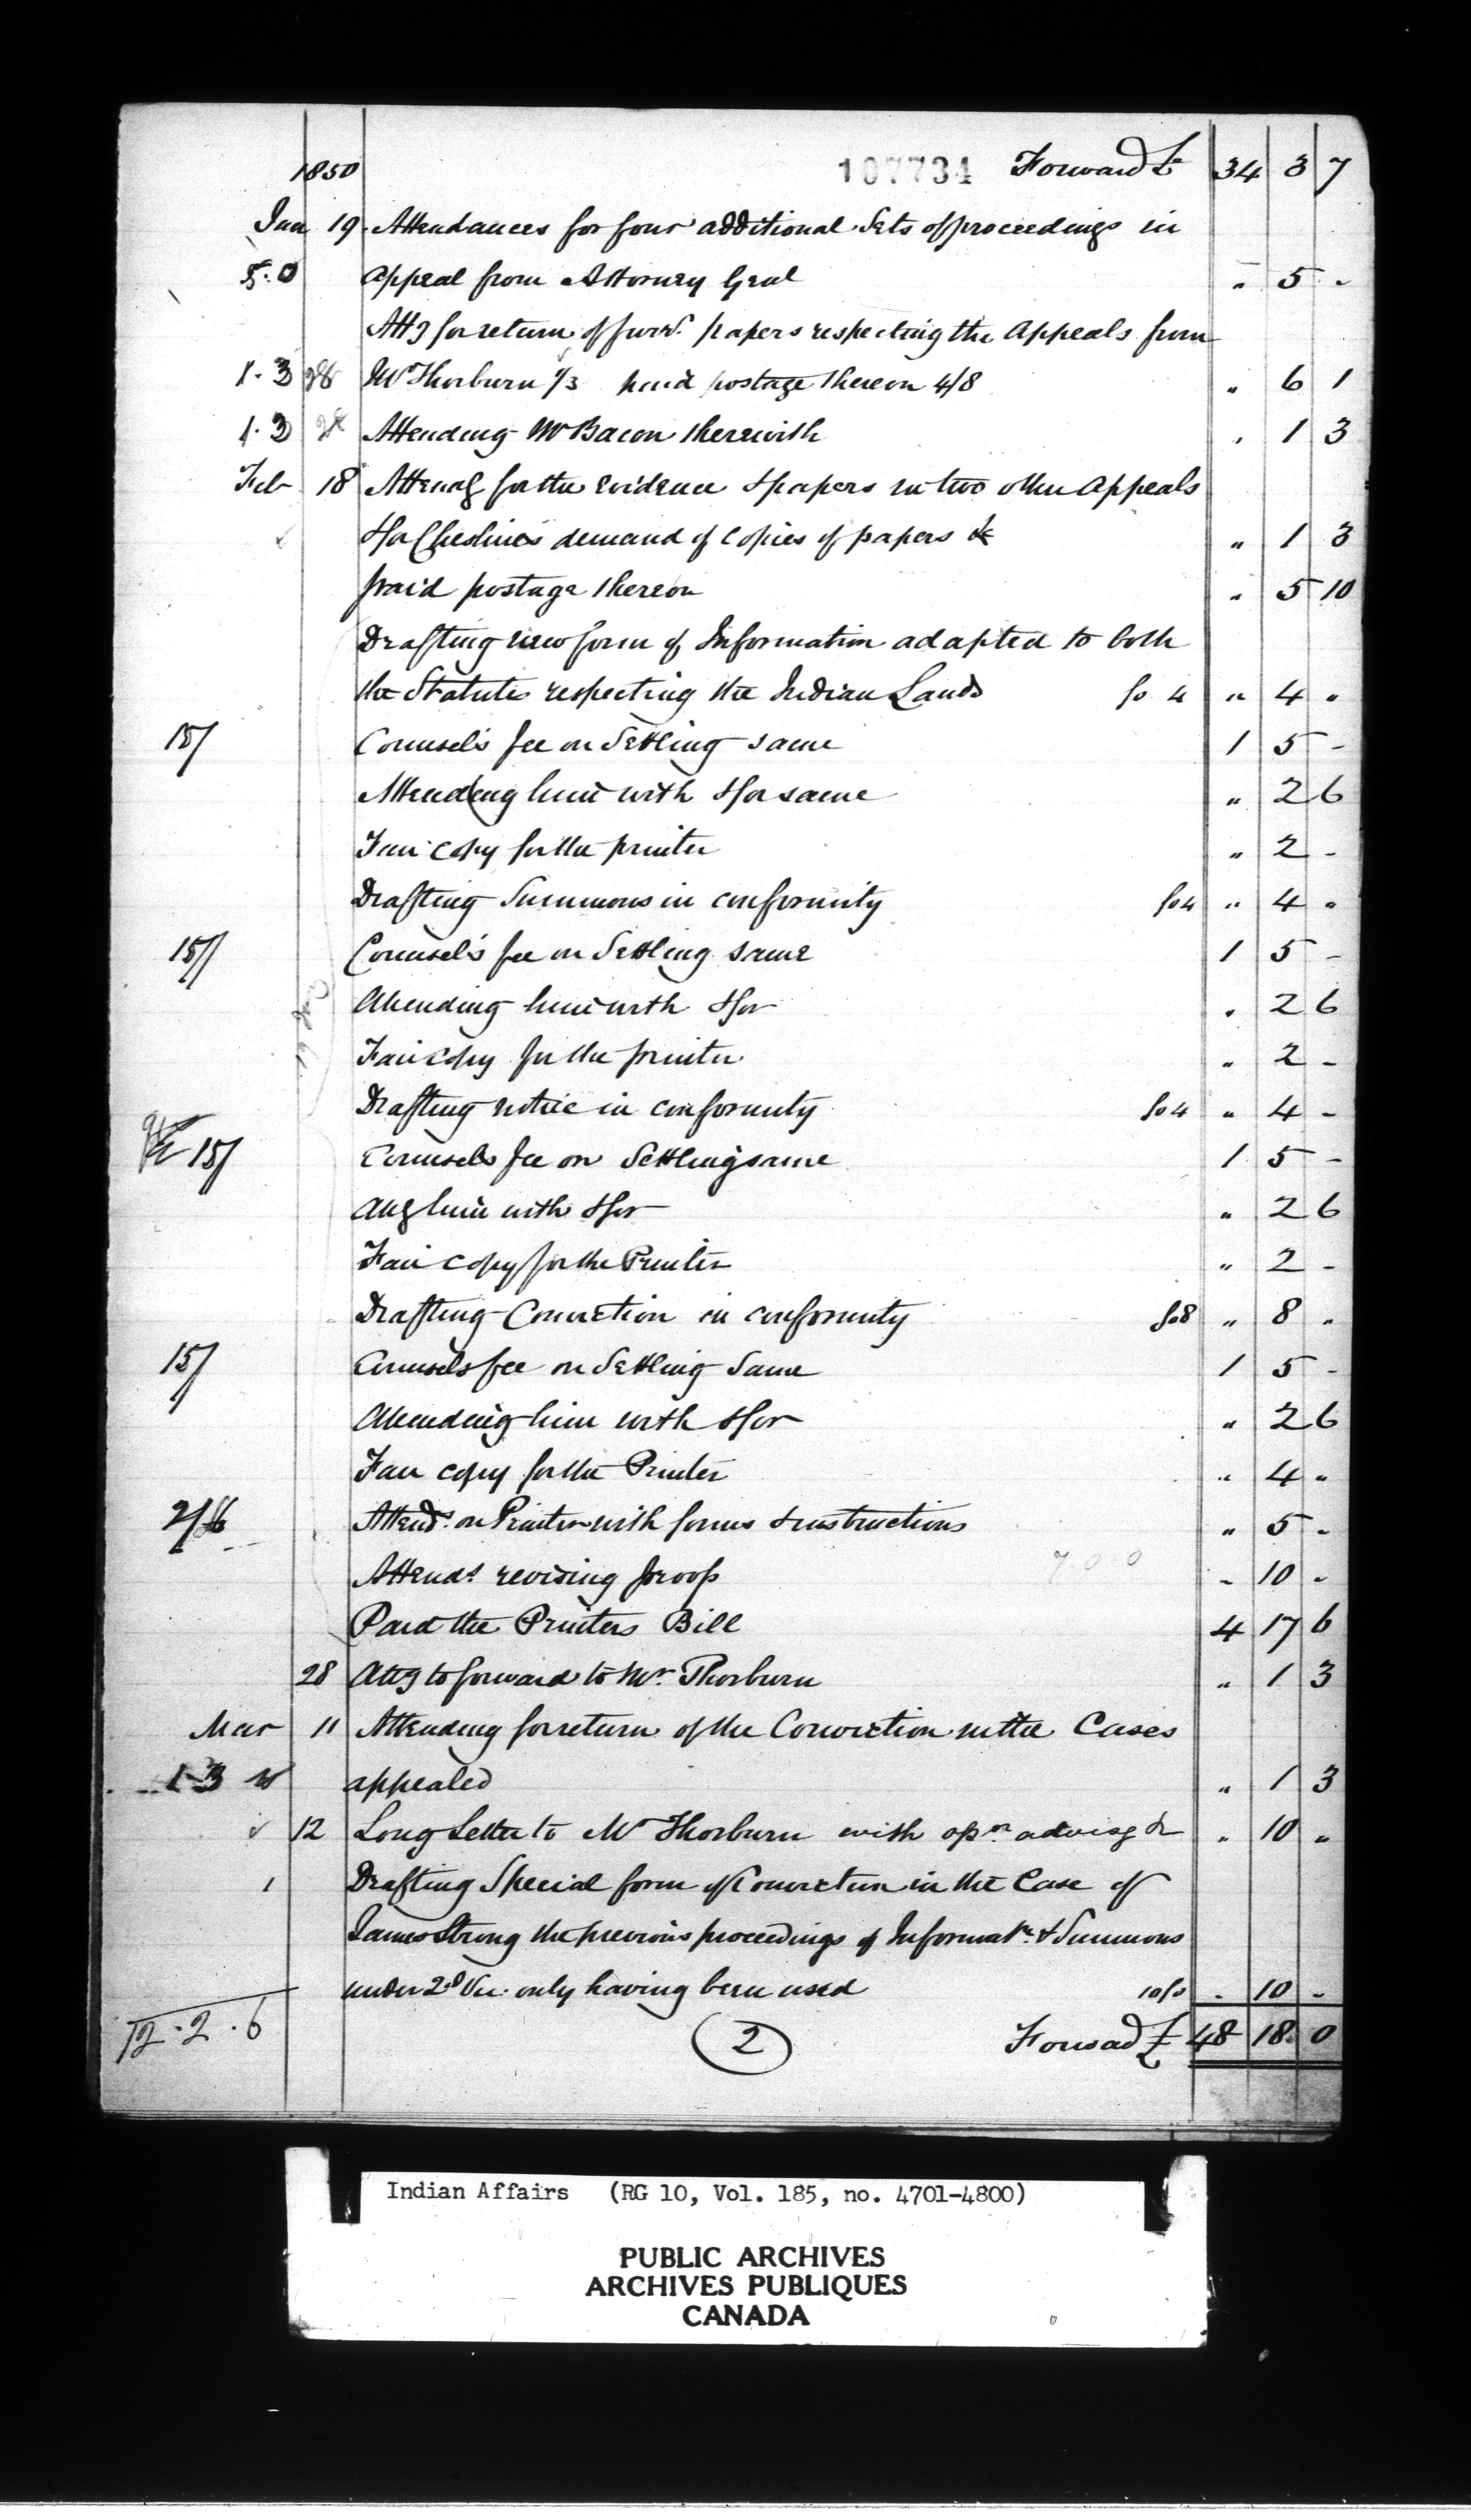 1850 107734 Forward £ 34 3 7
Jan 19 Attendances for four additional Sets of proceedings in
5.0 appeal from Attorney Genl " 5 -
Attg for return of furr. papers respecting the Appeals from
1.3 28 Mr Thorburn 1/3 paid postage thereon 4/8 " 6 1
1.3 28 Attending Mr Bacon therewith " 1 3
Feb 18 Attendg for the evidence & papers in two other Appeals
& for Cheshire's demand of copies of papers &c " 1 3
paid postage thereon " 5 10
Drafting new form of Information adapted to both
the Statutes respecting the Indian Lands fo 4 " 4 "
15/ Counsel's fee on Settling same 1 5 -
Attending him with & for same " 2 6
Fair copy for the printer " 2 -
Drafting Summons in conformity fo 4 " 4 "
15/ Counsel's fee on Settling same 1 5 -
Attending him with & for " 2 6
Fair copy for the printer " 2 -
Drafting notice in conformity fo 4 " 4 -
15/ Counsels fee on Settling same 1 5 -
Attg him with & for " 2 6
Fair copy for the Printer " 2 -
Drafting Conviction in conformity fo 8 " 8 "
15/ Counsels fee on Settling Same 1 5 -
Attending him with & for " 2 6
Fair copy for the Printer " 4 "
2/6 Attendg on Printer with forms & instructions " 5 -
Attendg revising proofs 7 0 0 - 10 -
Paid the Printers Bill 4 17 6
28 Attg to forward to Mr. Thorburn " 1 3
Mar 11 Attending for return of the Conviction in the Cases
1-3 appealed " 1 3
12 Long Letter to Mr Thorburn with opn advisg &c " 10 "
Drafting Special form of Conviction in the Case of
James Strong the previous proceedings of Informatn. & Summons
under 2d Vic. only having been used 10 fo - 10 -
12.2.6 2 Forward £ 48 18 0
Indian Affairs (RG 10, Vol. 185, no. 4701-4800)
PUBLIC ARCHIVES
ARCHIVES PUBLIQUES
CANADA